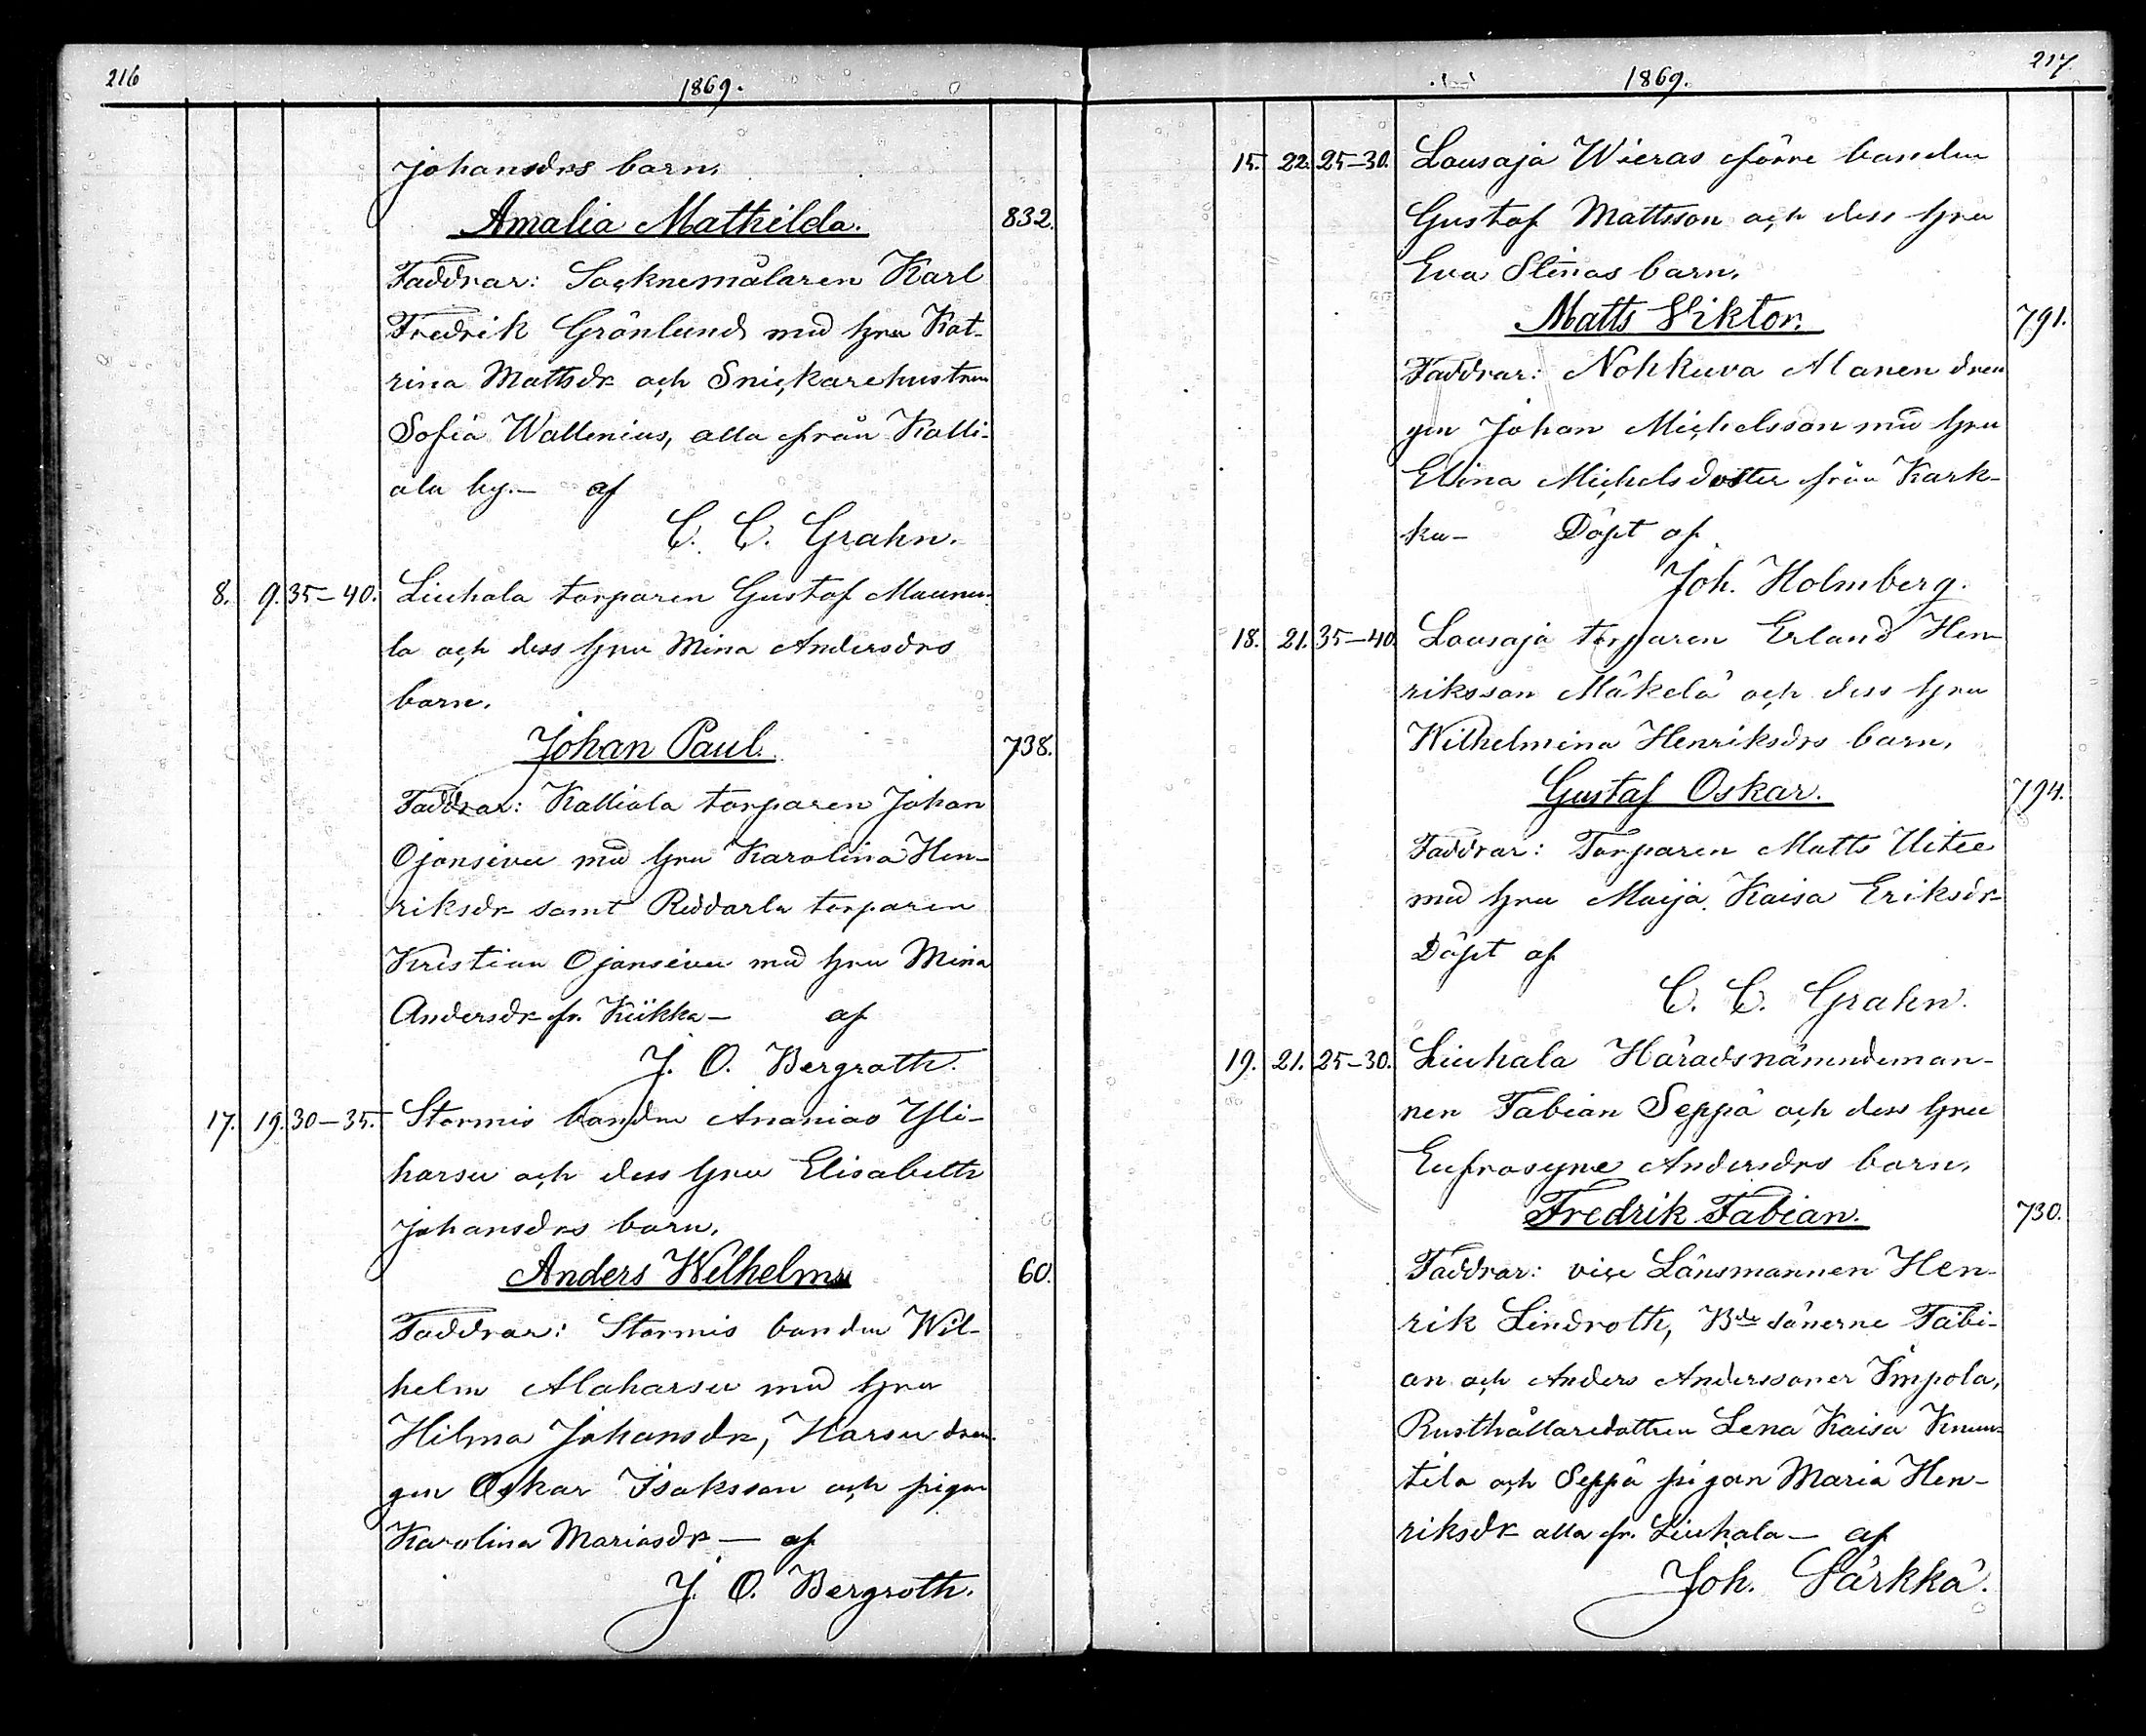 216
1869.
Johansdrs barn,
Amalia Mathilda. 832.
Faddrar: Socknemålaren Karl
Fredrik Grönlund med hru Kat-
rina Mattsdr och Snickarehustrun
Sofia Wallenius, alla från Kalli-
ala by.— af
C. C. Grahn.
8. 9. 35–40. Liuhala torparen Gustaf Maunu-
la och dess hru Mina Andersdrs
barn,
Johan Paul. 738.
Faddrar: Kalliala torparen Johan
Ojansivu med hru Karolina Hen-
riksdr samt Riddarla torparen
Kristian Ojansivu med hru Mina
Andersdr fr. Kiikka— af
J. O. Bergroth.
17. 19. 30–35. Stormis bonden Ananias Yli-
harsu och dess hru Elisabeth
Johansdrs barn,
Anders Wilhelm 60.
Faddrar: Stormis bonden Wil-
helm Alaharsu med hru
Hilma Johansdr, Harsu dren-
gen Oskar Isaksson och pigan
Karolina Mariasdr — af
J. O. Bergroth.
217.
1869.
15. 22. 25–30. Lousaja Wieras förre bonden
Gustaf Mattsson och dess hru
Eva Stinas barn,
Matts Viktor. 791.
Faddrar: Nohkuva Alanen dren
gen Johan Michelsson med hru
Elina Michelsdotter från Kark-
ku— Döpt af
Joh. Holmberg.
18. 21. 35–40. Lousaja torparen Erland Hen-
riksson Mäkelä och dess hru
Wilhelmina Henriksdrs barn,
Gustaf Oskar. 794.
Faddrar: Torparen Matts Uitee
med hru Maija Kaisa Eriksdr
Döpt af
C. C. Grahn.
19. 21. 25–30. Liuhala Häradsnämndeman-
nen Fabian Seppä och dess hru
Eufrosyne Andersdrs barn,
Fredrik Fabian. 730.
Faddrar: vice Länsmannen Hen-
rik Lindroth, Bde sönerne Fabi-
an och Anders Anderssoner Impola,
Rusthållaredottren Lena Kaisa Knuu-
tila och Seppä pigan Maria Hen-
riksdr alla fr. Liuhala— af
Joh. Särkkä.